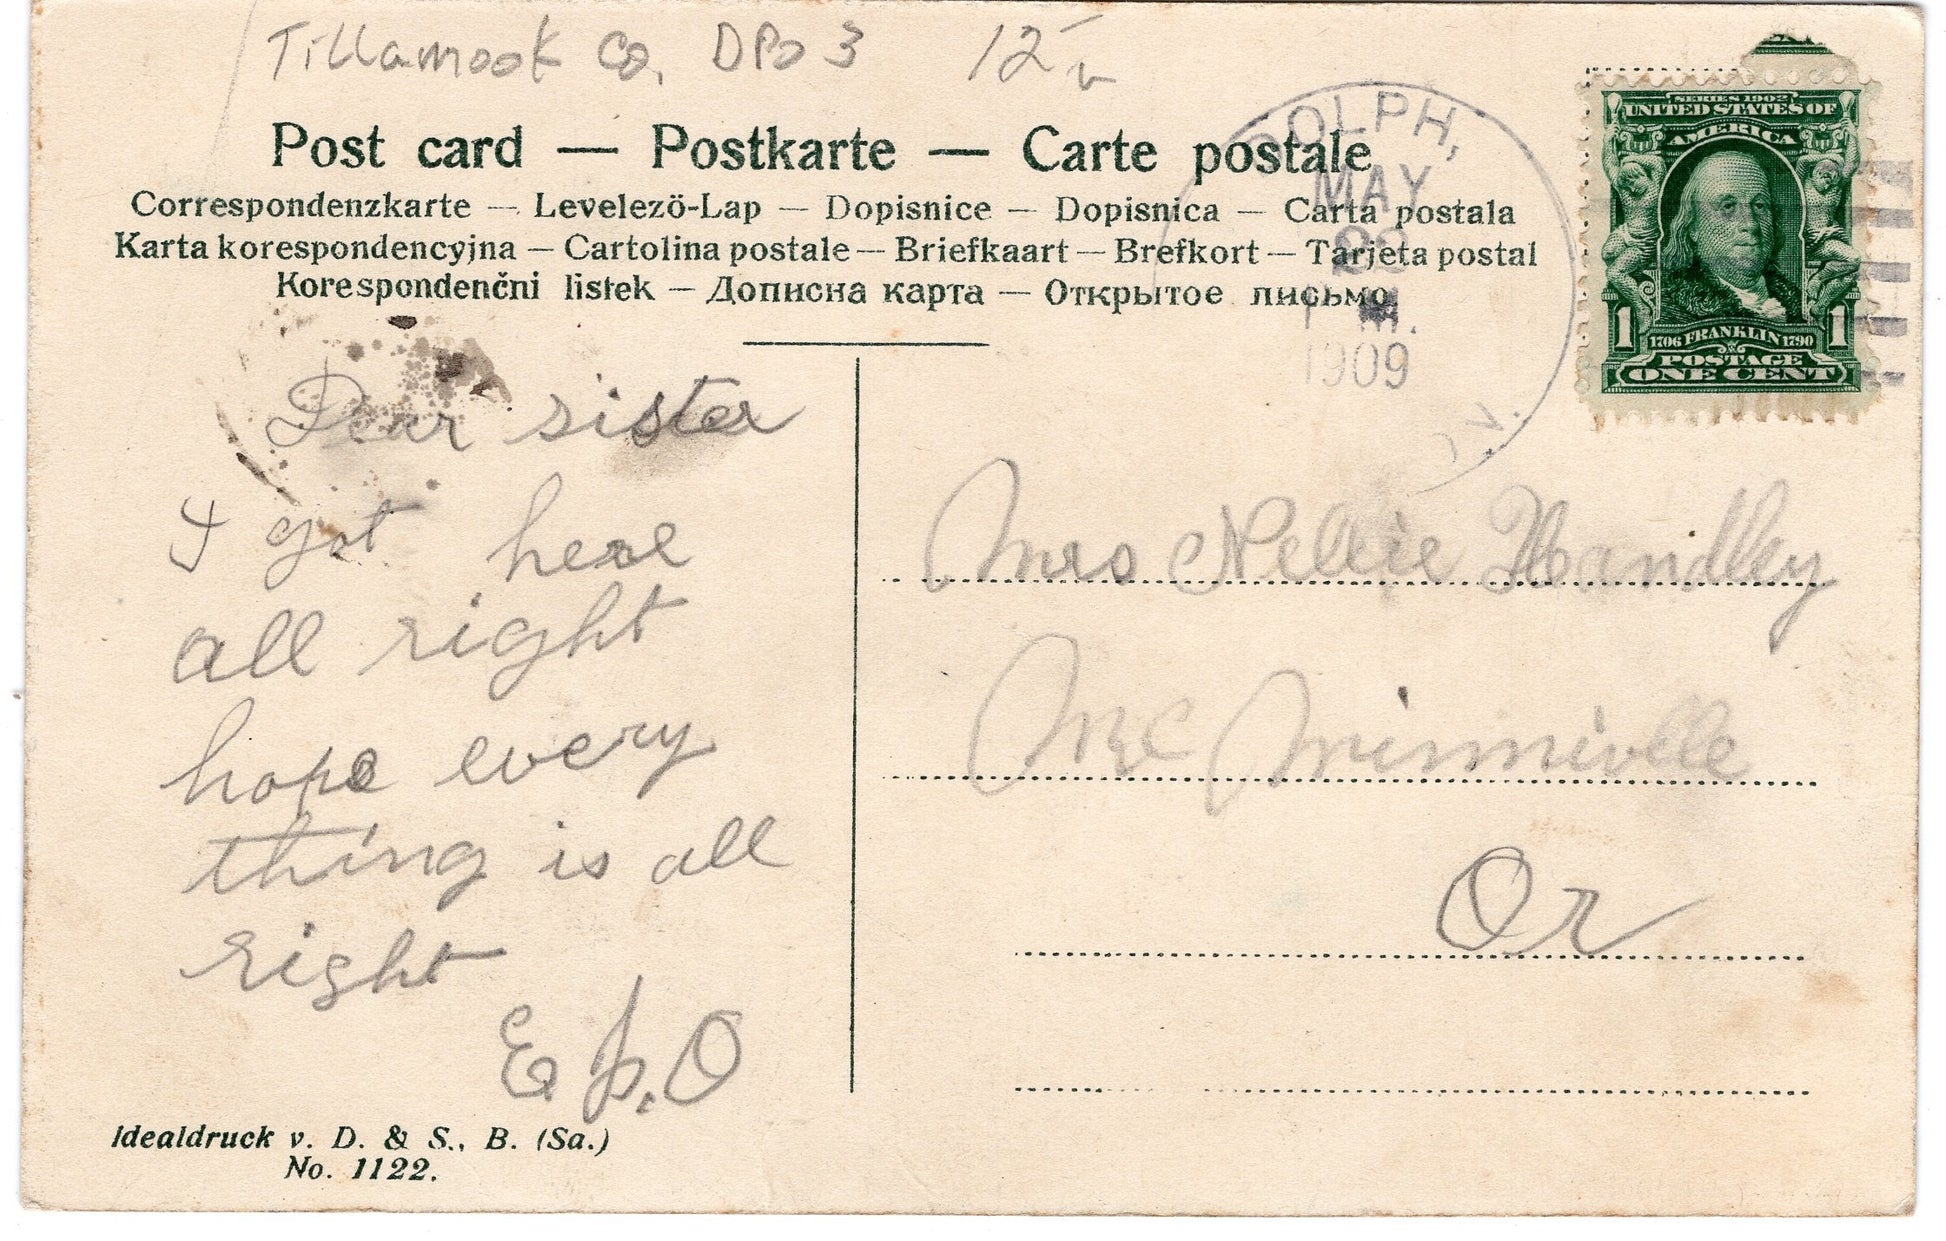 Tillamook Co, DPO 3 12
Post card — Postkarte — Carte postale
Correspondenzkarte — Levelező-Lap — Dopisnice — Dopisnica — Carta postala
Karta korespondencyjna — Cartolina postale — Briefkaart — Brefkort — Tarjeta postal
Korespondenčni listek — Дописна карта — Открытое письмо.
DOLPH,
MAY
M.
1909
SERIES 1902
UNITED STATES OF
AMERICA
1706 FRANKLIN 1790
1 1
POSTAGE
ONE CENT
Dear sister
I got here
all right
hope every
thing is all
right
Mrs Nellie Handley
Mc Minnivlle
Or
Idealdruck v. D. & S., B. (Sa.)
No. 1122.